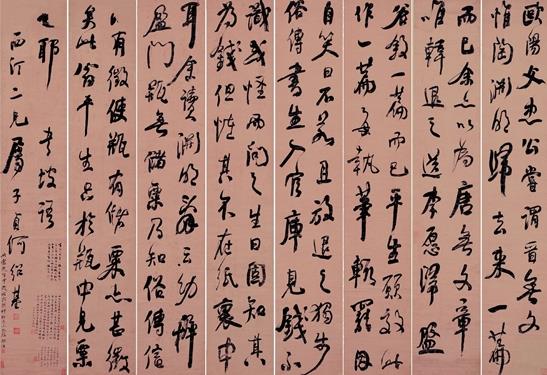 歐陽文忠公嘗謂晉無文
惟陶淵明歸去來一篇
而已余亦以為唐無文章
唯韓退之送李愿歸盤
谷敘一篇而已平生願效此
作一篇每執筆輒罷因
自笑曰不若且放退之獨步
俗傳書生入官庫見錢不
識或怪而問之生曰固知其
為錢但怪其不在紙裹中
耳余讀淵明辭云幼稚
盈門瓶無儲粟乃知俗傳信
有徵使瓶有儲粟亦甚微
矣此翁平生只於瓶中見粟
也耶 東坡語
西汀二兄屬 子貞何紹基